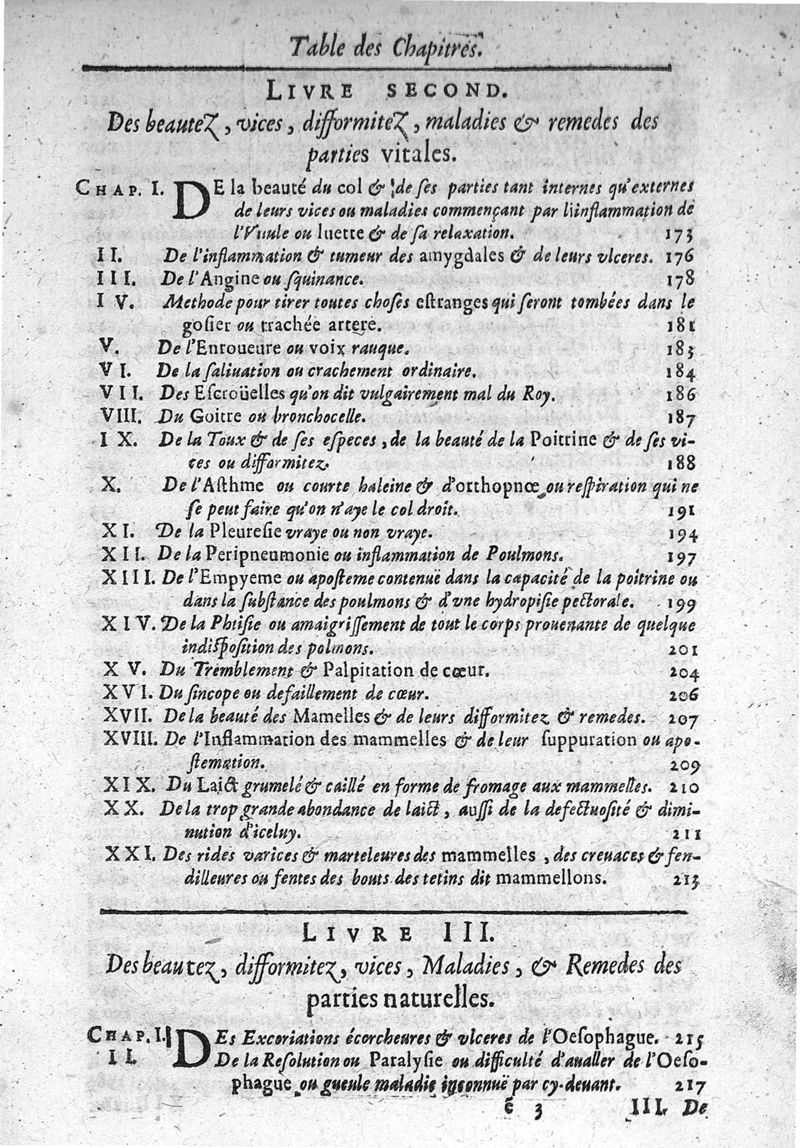 Table des Chapitres.
LIVRE SECOND.
Des beautez, vices, difformitez, maladies & remedes des
parties vitales.
CHAP. I. DE la beauté du col & de ses parties tant internes qu'externes
de leurs vices ou maladies commençant par l'inflammation de
l'Vuule ou luette & de sa relaxation. 173
II. De l'inflammation & tumeur des amygdales & de leurs vlceres. 176
III. De l'Angine ou squinance. 178
IV. Methode pour tirer toutes choses estranges qui seront tombées dans le
gosier ou trachée artere. 181
V. De l'Enroueure ou voix rauque. 183
VI. De la saliuation ou crachement ordinaire. 184
VII. Des Escroüelles qu'on dit vulgairement mal du Roy. 186
VIII. Du Goitre ou bronchocelle. 187
IX. De la Toux & de ses especes, de la beauté de la Poitrine & de ses vi-
ces ou difformitez. 188
X. De l'Asthme ou courte haleine & d'orthopnœ, ou respiration qui ne
se peut faire qu'on n'aye le col droit. 191
XI. De la Pleuresie vraye ou non vraye. 194
XII. De la Peripneumonie ou inflammation de Poulmons. 197
XIII. De l'Empyeme ou aposteme contenuë dans la capacité de la poitrine ou
dans la substance des poulmons & d'vne hydropisie pectorale. 199
XIV. De la Phtisie ou amaigrissement de tout le corps prouenante de quelque
indisposition des polmons. 201
XV. Du Tremblement & Palpitation de cœur. 204
XVI. Du sincope ou defaillement de cœur. 206
XVII. De la beauté des Mamelles & de leurs difformitez & remedes. 207
XVIII. De l'Inflammation des mammelles & de leur suppuration ou apo-
stemation. 209
XIX. Du Laict grumelé & caillé en forme de fromage aux mammelles. 210
XX. De la trop grande abondance de laict, aussi de la defectuosité & dimi-
nution d'iceluy. 211
XXI. Des rides varices & marteleures des mammelles, des creuaces & fen-
dilleures ou fentes des bouts des tetins dit mammellons. 213
LIVRE III.
Des beautez, difformitez, vices, Maladies, & Remedes des
parties naturelles.
CHAP. I. DEs Excoriations écorcheures & vlceres de l'Oesophague. 215
II. De la Resolution ou Paralysie ou difficulté d'aualler de l'Oeso-
phague ou gueule maladie inconnuë par cy-deuant. 217
é 3 III. De